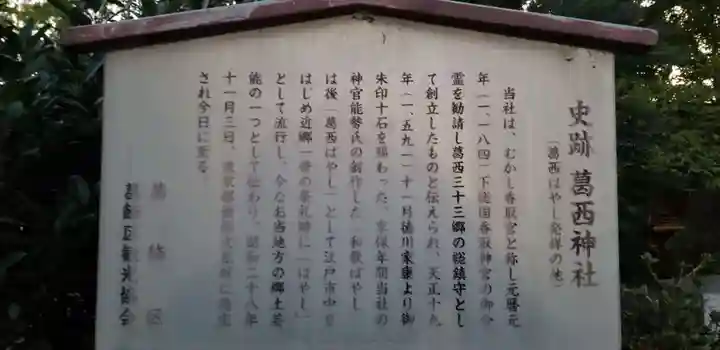 史跡 葛西神社
(葛西ばやし発祥の地)
当社は、むかし香取宮と称し元暦元
年(一、一八四)下総国香取神宮の御分
霊を勧請し葛西三十三郷の総鎮守とし
て創立したものと伝えられ、天正十九
年(一、五九一)十一月徳川家康より御
朱印十石を賜わった。享保年間当社の
神官能勢氏の創作した「和歌ばやし」
は後「葛西ばやし」として江戸市中を
はじめ近郷一帯の祭礼時に「はやし」
として流行し、今なお当地方の郷土芸
能の一つとして伝わり、昭和二十八年
十一月三日、東京都無形文化財に指定
され今日に至る。
葛飾区
葛飾区観光協会